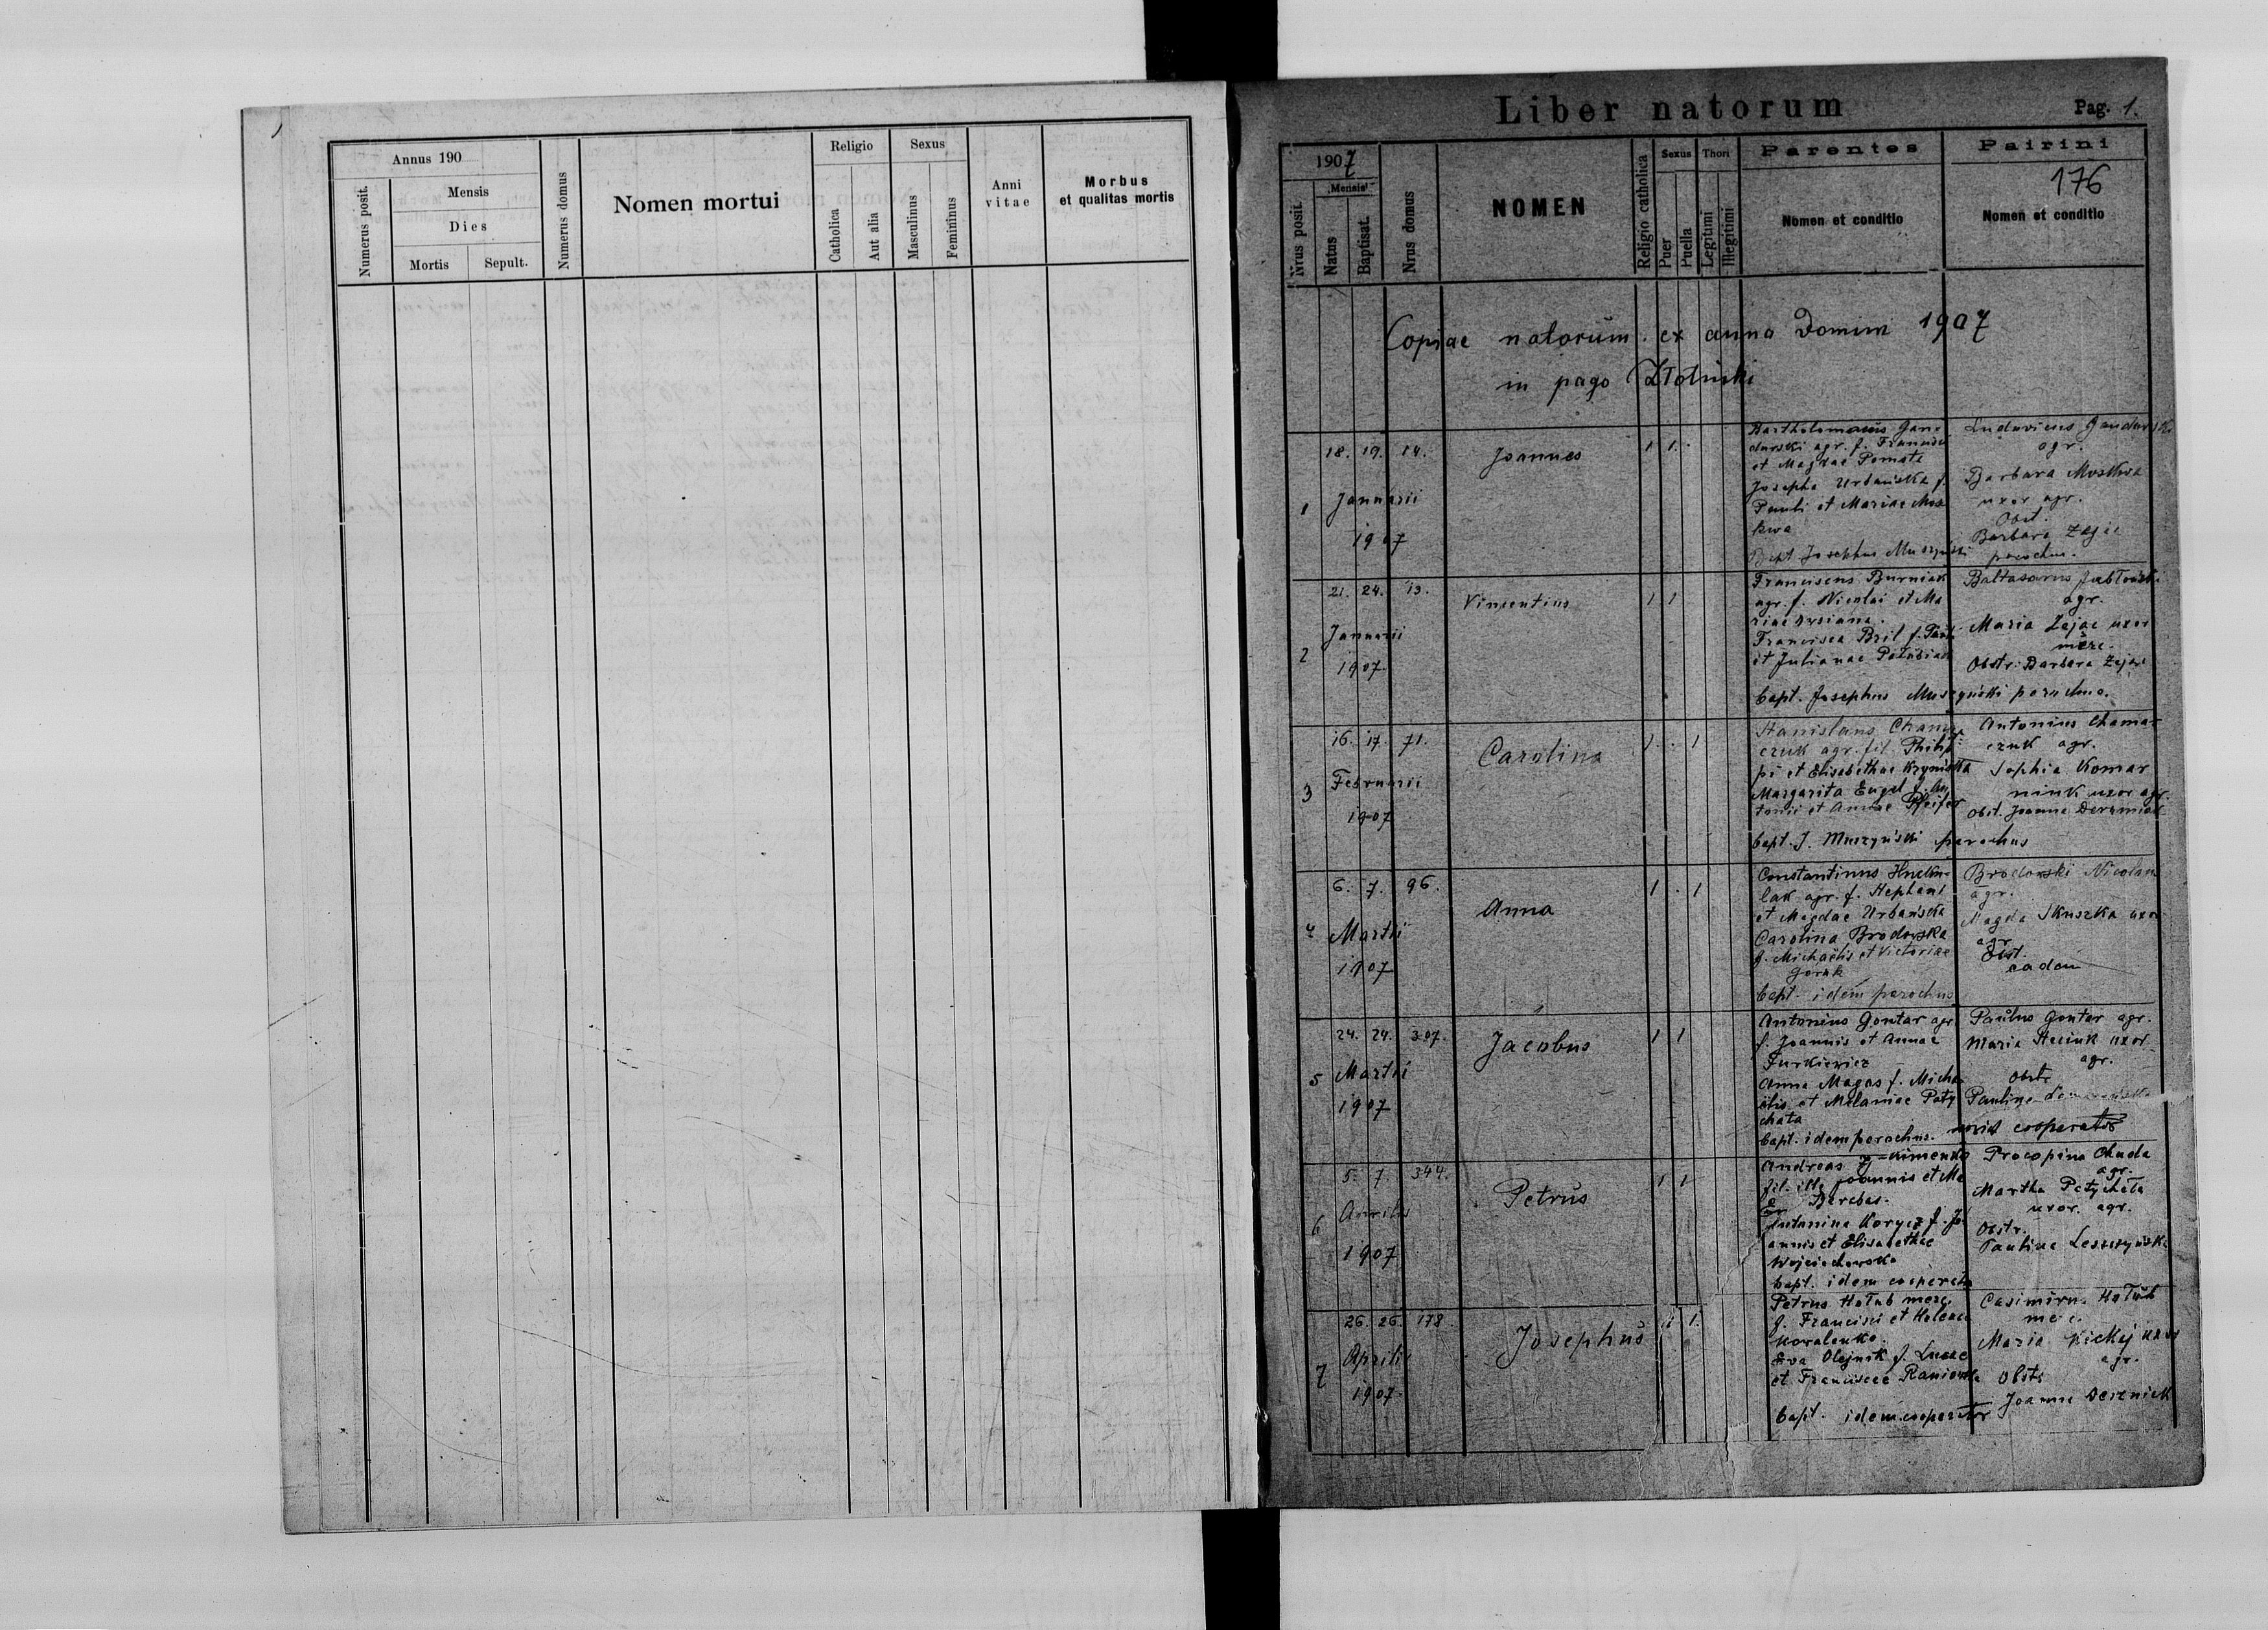 Annus 190
Numerus posit.
Mensis
Dies
Mortis
Sepult.
Numerus domus
Nomen mortui
Religio
Catholica
Aut alia
Sexus
Masculinus
Femininus
Anni
vitae
Morbus
et qualitas mortis
Liber natorum
Pag. 1.
1907
Nrus posit.
Mensis
Natus
Baptisat.
Nrus domus
NOMEN
Religio catholica
Sexus
Puer
Puella
Thori
Legitimi
Illegitimi
Parentes
Nomen et conditio
Pairini
176
Nomen et conditio
Copiae natorum ex anno Domini 1907
in pago
1
18. 19. 14.
Januarii
1907
Joannes
1 1.
Bartholomaeus Gan-
durski agr. f. Francisci
et Magdae
Josepha Urbańska f.
Pauli et Mariae Mos
kwa
Bapt. Josephus Muszyński parochus.
Ludovicus Gandurski
agr.
Barbara Moskwa
uxor agr.
Obst.
Barbara Zając
2
21. 24. 13.
Januarii
1907.
Vincentius
1 1
Franciscus Burniak
agr. f. Nicolai et Ma
riae
Francisca Bril f.
et Julianae
bapt. Josephus Muszyński parochus.
Baltasarus Jabłoński
agr.
Maria Zając uxor
merc.
Obstr. Barbara Zając
3
16. 17. 71.
Februarii
1907
Carolina
1 . 1
Stanislaus Chama
czuk agr. fil. Philip
pi et Elisabethae
Margarita Engel f. An
tonii et Annae Pfeifer
bapt. J. Muszyński parochus
Antonius Chamar
czuk agr.
Sophia Komar
niuk uxor agr.
Obst. Joanna
4
6. 7. 96.
Martii
1907
Anna
1 . 1
Constantinus
lak agr. f. Stephani
et Magdae Urbańska
Carolina Brodowska
f. Michaëlis et Victoriae
Goruk
bapt. idem parochus
Brodowski Nicolaus
agr.
Magda Skuszka uxor
agr.
Obst.
eadem
5
24. 24. 307.
Martii
1907
Jacobus
1 1
Antonius Gontar agr.
f. Joannis et Annae
Jurkiewicz
Anna Magas f. Micha
ëlis et Melaniae Paty
chata
bapt. idem parochus. cooperator
Paulus Gontar agr.
Maria Steciuk uxor
agr.
Obstr.
Paulina
6
5. 7. 344.
Aprilis
1907
Petrus
1 1
Andreas
fil. ill. Joannis et Ma
Antonina Korycz f. Jo
annis et Elisabethae
Wojciechowska
bapt. idem cooperator
Procopius Chuda
agr.
Martha Patychata
uxor. agr.
Obstr.
Paulina Leszczyńska
7
26. 26. 178.
Aprilis
1907.
Josephus
1 1.
Petrus Hołub merc.
f. Francisci et Helenae
Kowalenko.
Eva Olejnik f. Lucae
et Franciscae
bapt. idem cooperator
Casimirus Hołub
merc.
Maria Kickej uxor
agr.
Obstr.
Joanna